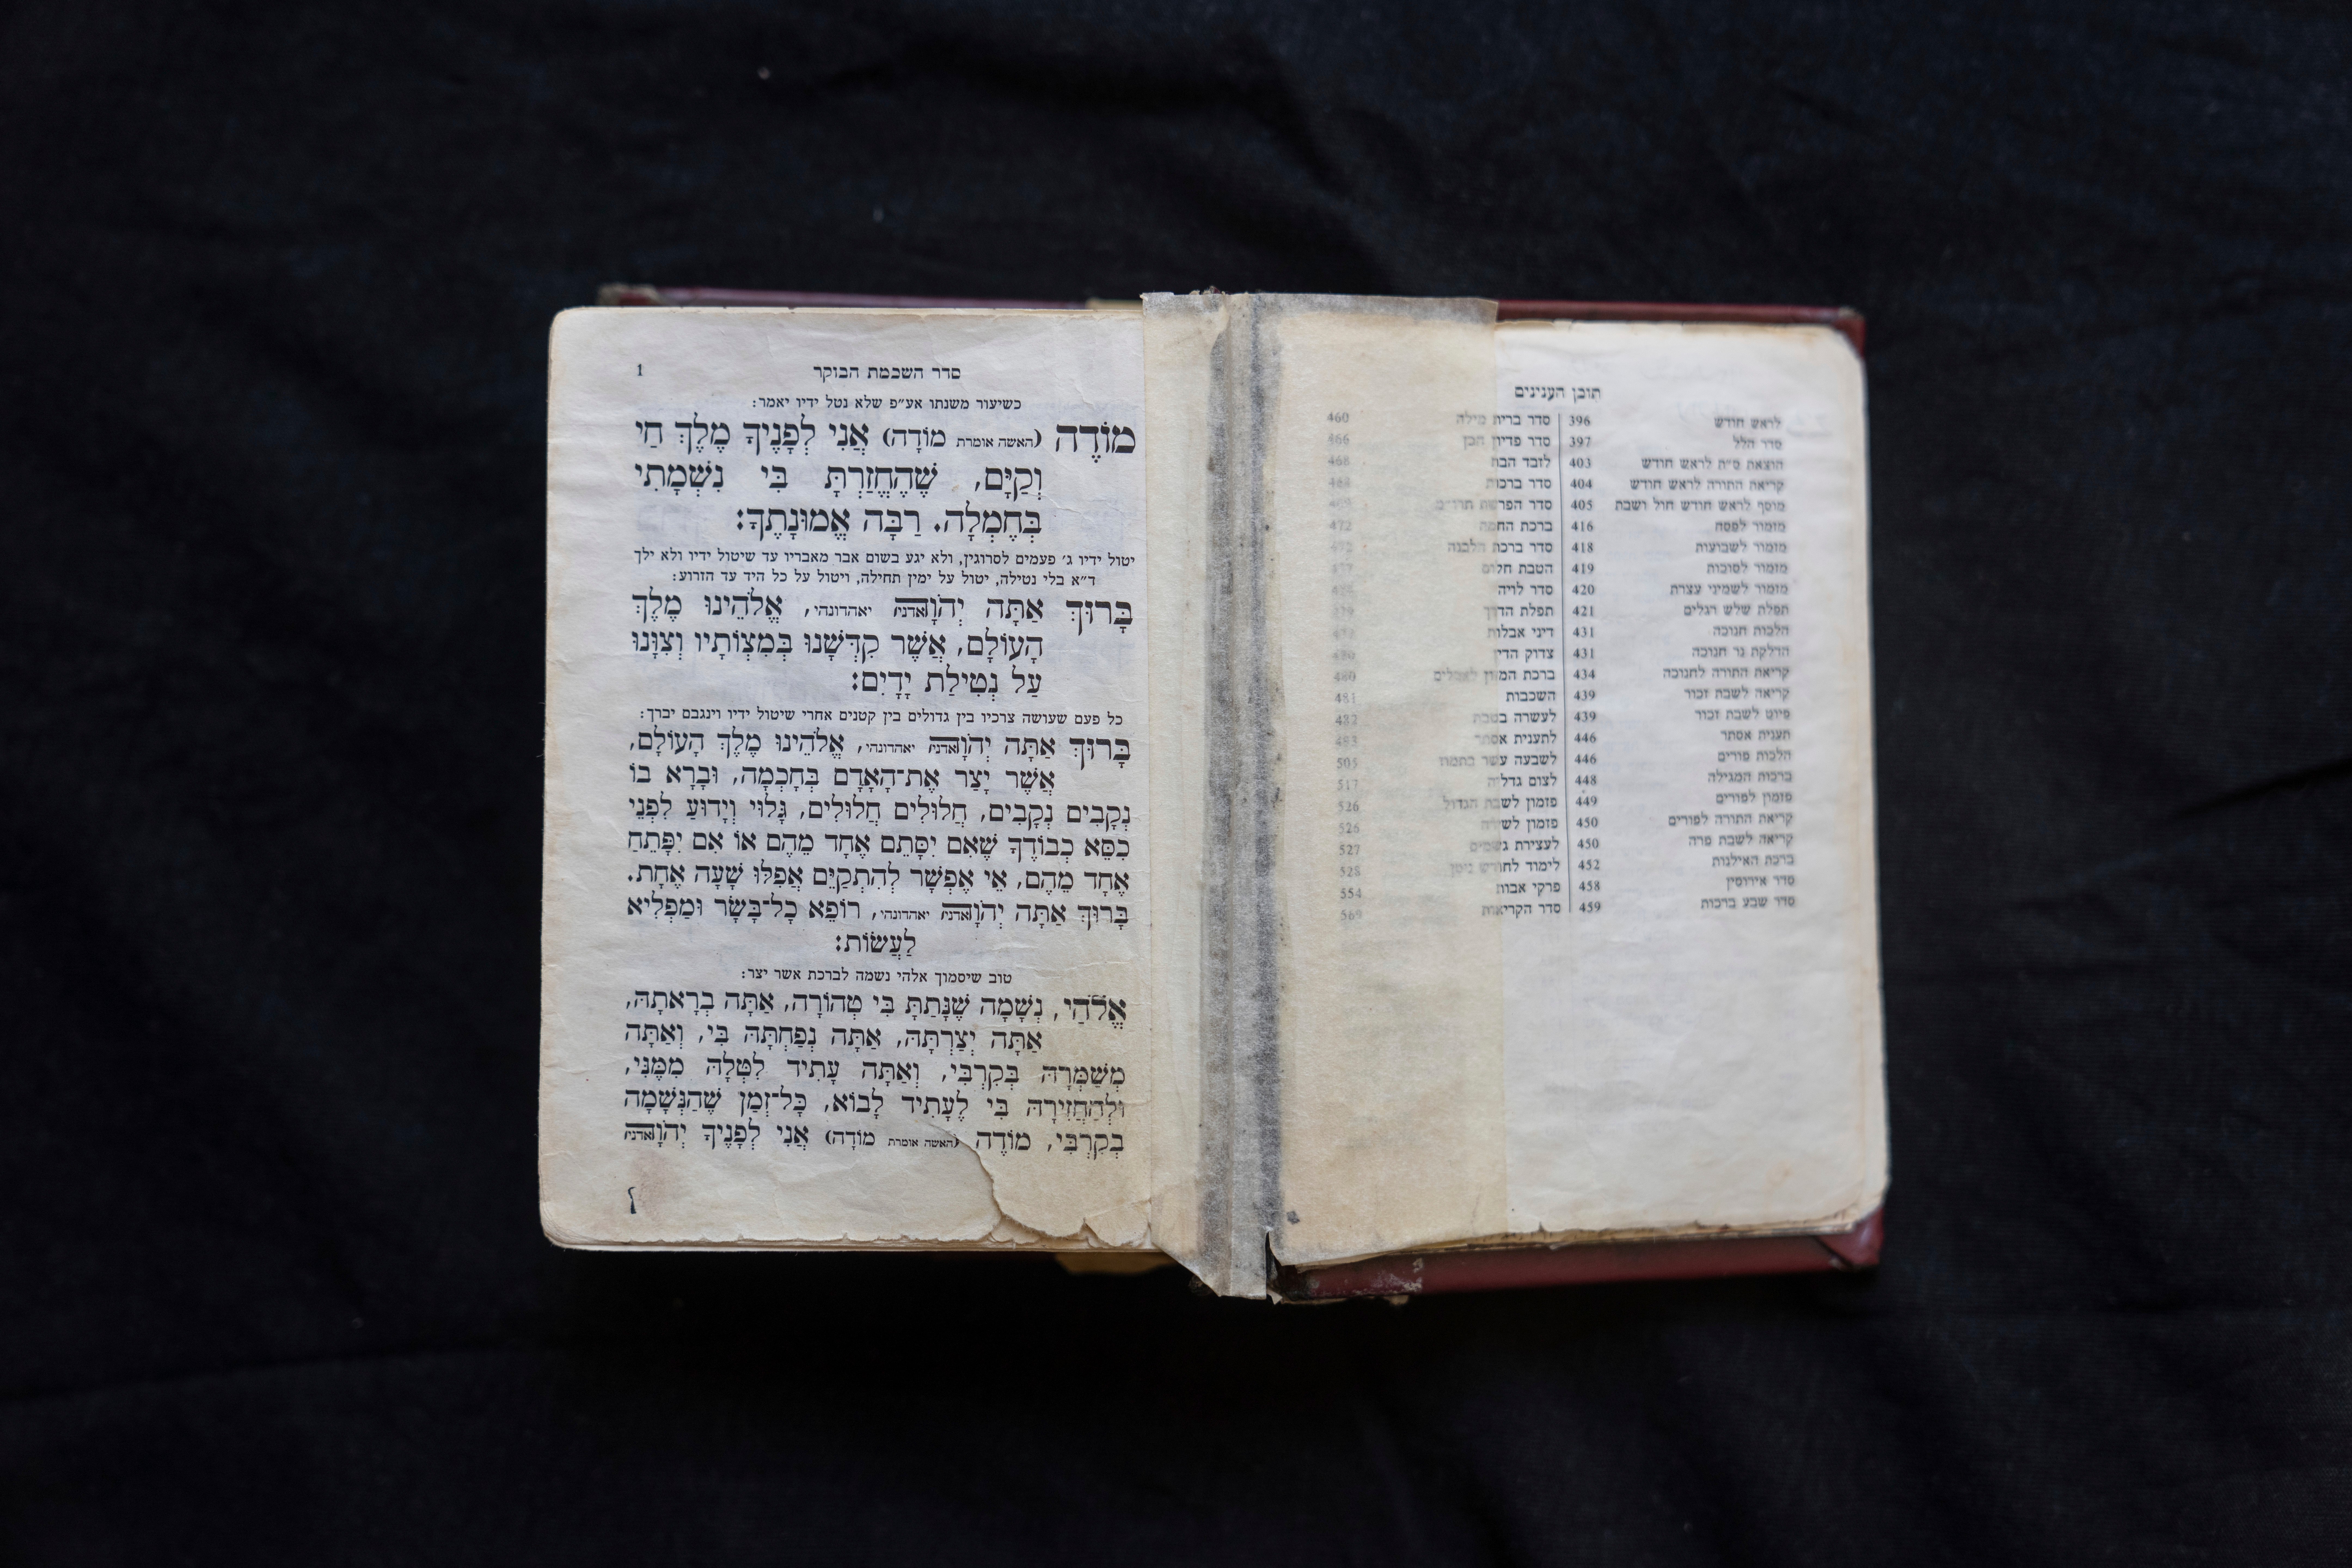 תוכן הענינים
לראש חודש 396
סדר הלל 397
הוצאת ס״ת לראש חודש 403
קריאת התורה לראש חודש 404
מוסף לראש חודש חול ושבת 405
מזמור לפסח 416
מזמור לשבועות 418
מזמור לסוכות 419
מזמור לשמיני עצרת 420
תפלת שלש רגלים 421
הלכות חנוכה 431
הדלקת נר חנוכה 431
קריאת התורה לחנוכה 434
קריאה לשבת זכור 439
פיוט לשבת זכור 439
תענית אסתר 446
הלכות פורים 446
ברכות המגילה 448
פזמון לפורים 449
קריאת התורה לפורים 450
קריאה לשבת פרה 450
ברכת האילנות 452
סדר אירוסין 458
סדר שבע ברכות 459
סדר ברית מילה 460
סדר פדיון הבן 466
לזבד הבת 468
סדר ברכות 468
סדר הפרשת תרו״מ 469
ברכת החמה 472
סדר ברכת הלבנה 472
הטבת חלום
סדר לויה
תפלת הדרך
דיני אבלות
צדוק הדין 480
ברכת המזון לאבלים 480
השכבות 481
לעשרה בטבת 482
לתענית אסתר 493
לשבעה עשר בתמוז 505
לצום גדליה 517
פזמון לשבת הגדול 526
פזמון לשירה 526
לעצירת גשמים 527
לימוד לחודש ניסן 528
פרקי אבות 554
סדר הקריאות 569
סדר השכמת הבוקר 1
כשיעור משנתו אע״פ שלא נטל ידיו יאמר:
מוֹדֶה (האשה אומרת מוֹדָה) אֲנִי לְפָנֶיךָ מֶלֶךְ חַי
וְקַיָּם, שֶׁהֶחֱזַרְתָּ בִּי נִשְׁמָתִי
בְּחֶמְלָה. רַבָּה אֱמוּנָתֶךָ:
יטול ידיו ג׳ פעמים לסרוגין, ולא יגע בשום אבר מאבריו עד שיטול ידיו ולא ילך
ד״א בלי נטילה, יטול על ימין תחילה, ויטול על כל היד עד הזרוע:
בָּרוּךְ אַתָּה יְהֹוָה אדני יאהדונהי, אֱלֹהֵינוּ מֶלֶךְ
הָעוֹלָם, אֲשֶׁר קִדְּשָׁנוּ בְּמִצְוֹתָיו וְצִוָּנוּ
עַל נְטִילַת יָדָיִם:
כל פעם שעושה צרכיו בין גדולים בין קטנים אחרי שיטול ידיו וינגבם יברך:
בָּרוּךְ אַתָּה יְהֹוָה אדני יאהדונהי, אֱלֹהֵינוּ מֶלֶךְ הָעוֹלָם,
אֲשֶׁר יָצַר אֶת־הָאָדָם בְּחָכְמָה, וּבָרָא בוֹ
נְקָבִים נְקָבִים, חֲלוּלִים חֲלוּלִים, גָּלוּי וְיָדוּעַ לִפְנֵי
כִסֵּא כְבוֹדֶךָ שֶׁאִם יִסָּתֵם אֶחָד מֵהֶם אוֹ אִם יִפָּתֵחַ
אֶחָד מֵהֶם, אִי אֶפְשָׁר לְהִתְקַיֵּם אֲפִלּוּ שָׁעָה אֶחָת.
בָּרוּךְ אַתָּה יְהֹוָה אדני יאהדונהי, רוֹפֵא כָל־בָּשָׂר וּמַפְלִיא
לַעֲשׂוֹת:
טוב שיסמוך אלהי נשמה לברכת אשר יצר:
אֱלֹהַי, נְשָׁמָה שֶׁנָּתַתָּ בִּי טְהוֹרָה, אַתָּה בְרָאתָהּ,
אַתָּה יְצַרְתָּהּ, אַתָּה נְפַחְתָּהּ בִּי, וְאַתָּה
מְשַׁמְּרָהּ בְּקִרְבִּי, וְאַתָּה עָתִיד לִטְּלָהּ מִמֶּנִּי,
וּלְהַחֲזִירָהּ בִּי לֶעָתִיד לָבוֹא, כָּל־זְמַן שֶׁהַנְּשָׁמָה
בְקִרְבִּי, מוֹדֶה (האשה אומרת מוֹדָה) אֲנִי לְפָנֶיךָ יְהֹוָה אדני